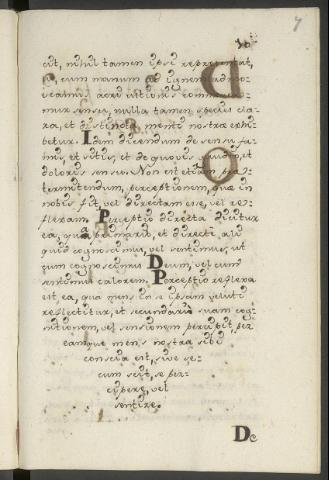 7
cit, nihil tamen ipse repræsentat,
cum manum ad ignem admo-
acri
mur sensu, nulla tamen species cla-
ra, et distincta menti nostræ exhi-
betur. Idem dicendum de sensu fa-
mis, et sitis, et de quovis et
doloris sensu. Non est etiam præ-
termittendum, perceptionem, quæ in
nobis fit, vel directam esse, vel re-
flexam. Perceptio directa dicitur
ea, qua primario, et directe ali-
quid cognoscimus, vel sentimus, ut
cum cognoscimus Deum, vel cum
sentimus calorem. Perceptio reflexa
est, ea, qua mens in se ipsam veluti
reflectitur, et secundario suam cog-
nitionem, vel sensionem percipit, per
eamque mens nostra sibi
conscia est, sive se-
cum scit, se per-
cipere, vel
sentire.
De